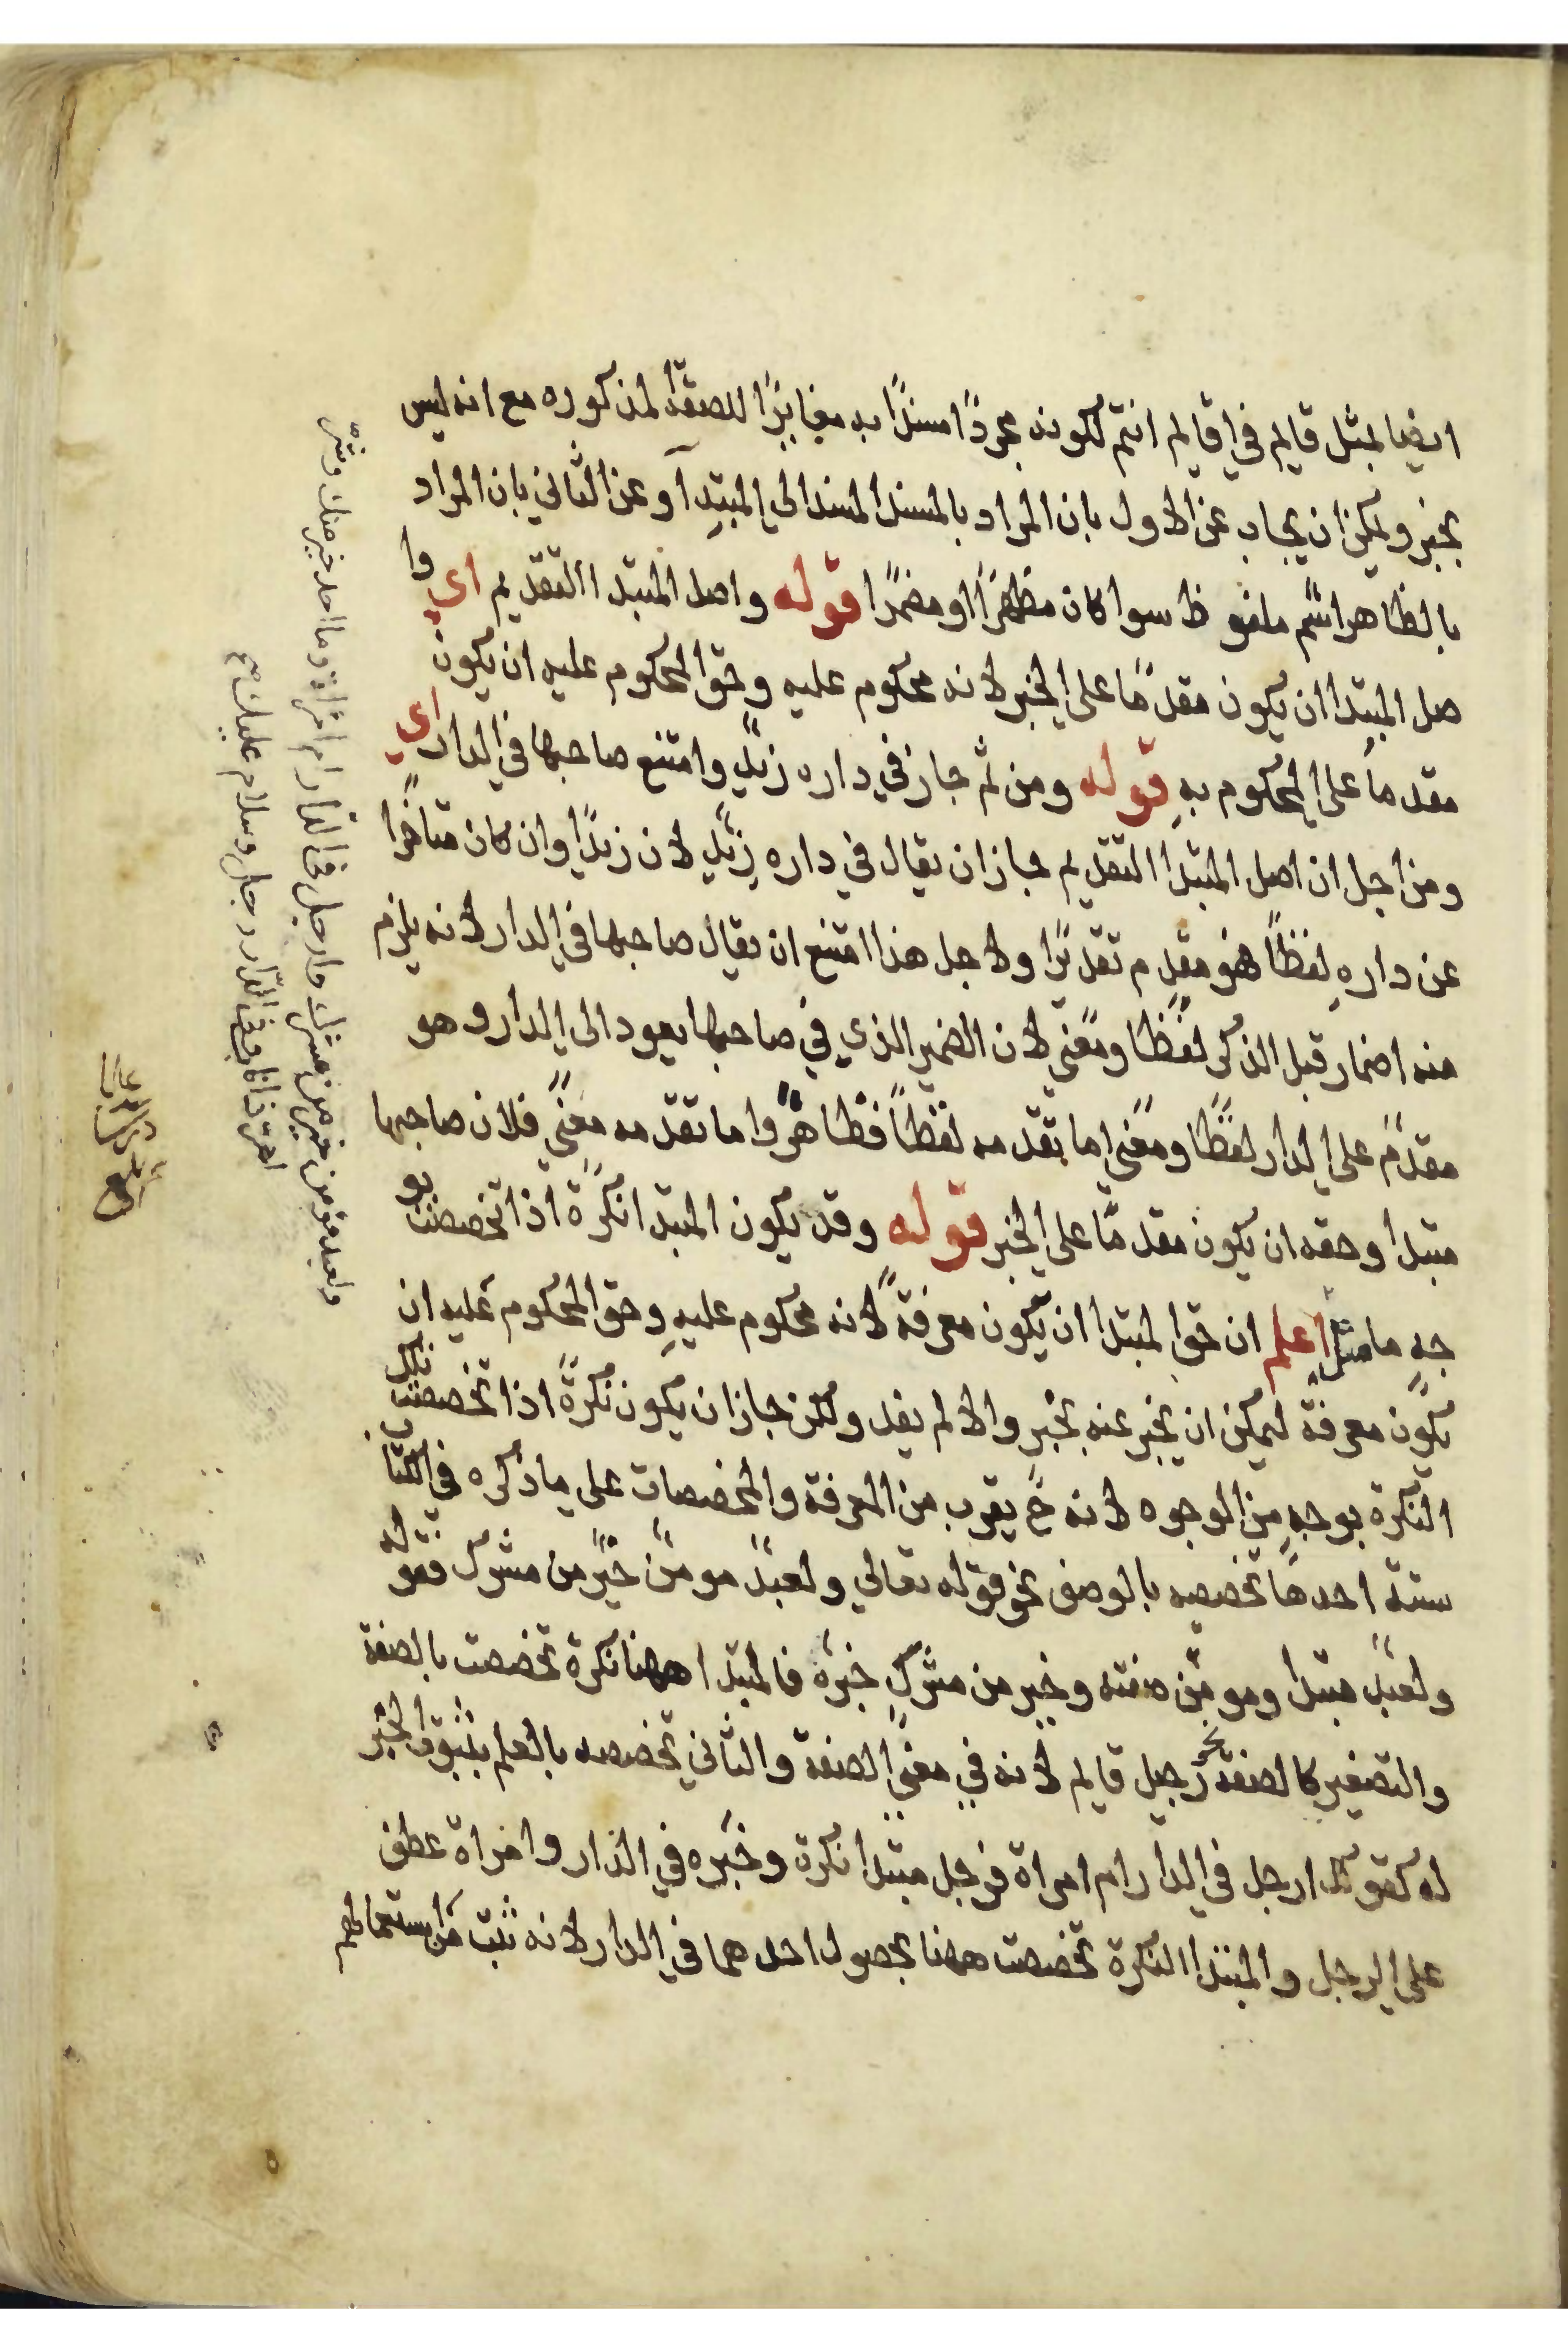 ايضا بمثل قايم في اقايم انتم لكونه مجردًا مسندًا به مغايرًا للصفة المذكوره مع انه ليس
بخبر ويمكن ان يجاب عن الاول بان المراد بالمسند المسند الى المبتدآ وعن الثاني بان المراد
بالظاهر اسم ملفوظ سوا كان مظهرًا او مضمرًا قوله واصل المبتدا التقديم اي وا
صل المبتدا ان يكون مقدمًا على الخبر لانه محكوم عليه وحق المحكوم عليه ان يكون
مقدما على المحكوم به قوله ومن ثم جاز في داره زيدٌ وامتنع صاحبها في الدار اي
ومن اجل ان اصل المبتدا التقديم جاز ان يقال في داره زيدٌ لان زيدًا وان كان متاخرًا
عن داره لفظًا فهو مقدم تقديرًا ولاجل هذا امتنع ان يقال صاحبها في الدار لانه يلزم
منه اضمار قبل الذكر لفظًا ومعنًى لان الضمير الذي في صاحبها يعود الى الدار وهو
مقدم على الدار لفظًا ومعنى اما تقدمه لفظًا فظاهرٌ واما تقدمه معنًى فلان صاحبها
مبتدا وحقه ان يكون مقدمًا على الخبر قوله وقد يكون المبتدا نكرةً اذا تخصصت بو
جهٍ ما مثل اعلم ان حق المبتدا ان يكون معرفةً لانه محكوم عليهِ وحق المحكوم عليه ان
يكون معرفة ليمكن ان يخبر عنه بخبر والا لم يفد ولكن جاز ان يكون نكرةً اذا تخصصت تلك
النكرة بوجهٍ من الوجوه لانه ح يقرب من المعرفة والمخصصات على ما ذكره في الكتاب
ستة احدها تخصيصه بالوصف نحو قوله تعالي ولعبدٌ مومنٌ خيرٌ من مشرك فقوله
ولعبدٌ مبتدا ومومن صفته وخير من مشركٍ خبره فالمبتدا ههنا نكرة تخصصت بالصفة
والتصغير كالصفة نحو رجيل قايم لانه في معنى الصفة والثاني تخصصه بالعلم بثبوت الخبر
له كقولك ارجل في الدار ام امراة فرجل مبتدا نكرة وخبره في الدار وامراة عطف
على الرجل والمبتدا النكرة تخصصت ههنا بحصول احدهما في الدار لانه ثبت من استعمالهم
ولعبد مومن خير من مشرك وارجل في الدار ام امراة وما احد خير منك وشر
اهر ذا ناب وفي الدار رجل وسلام عليك صح